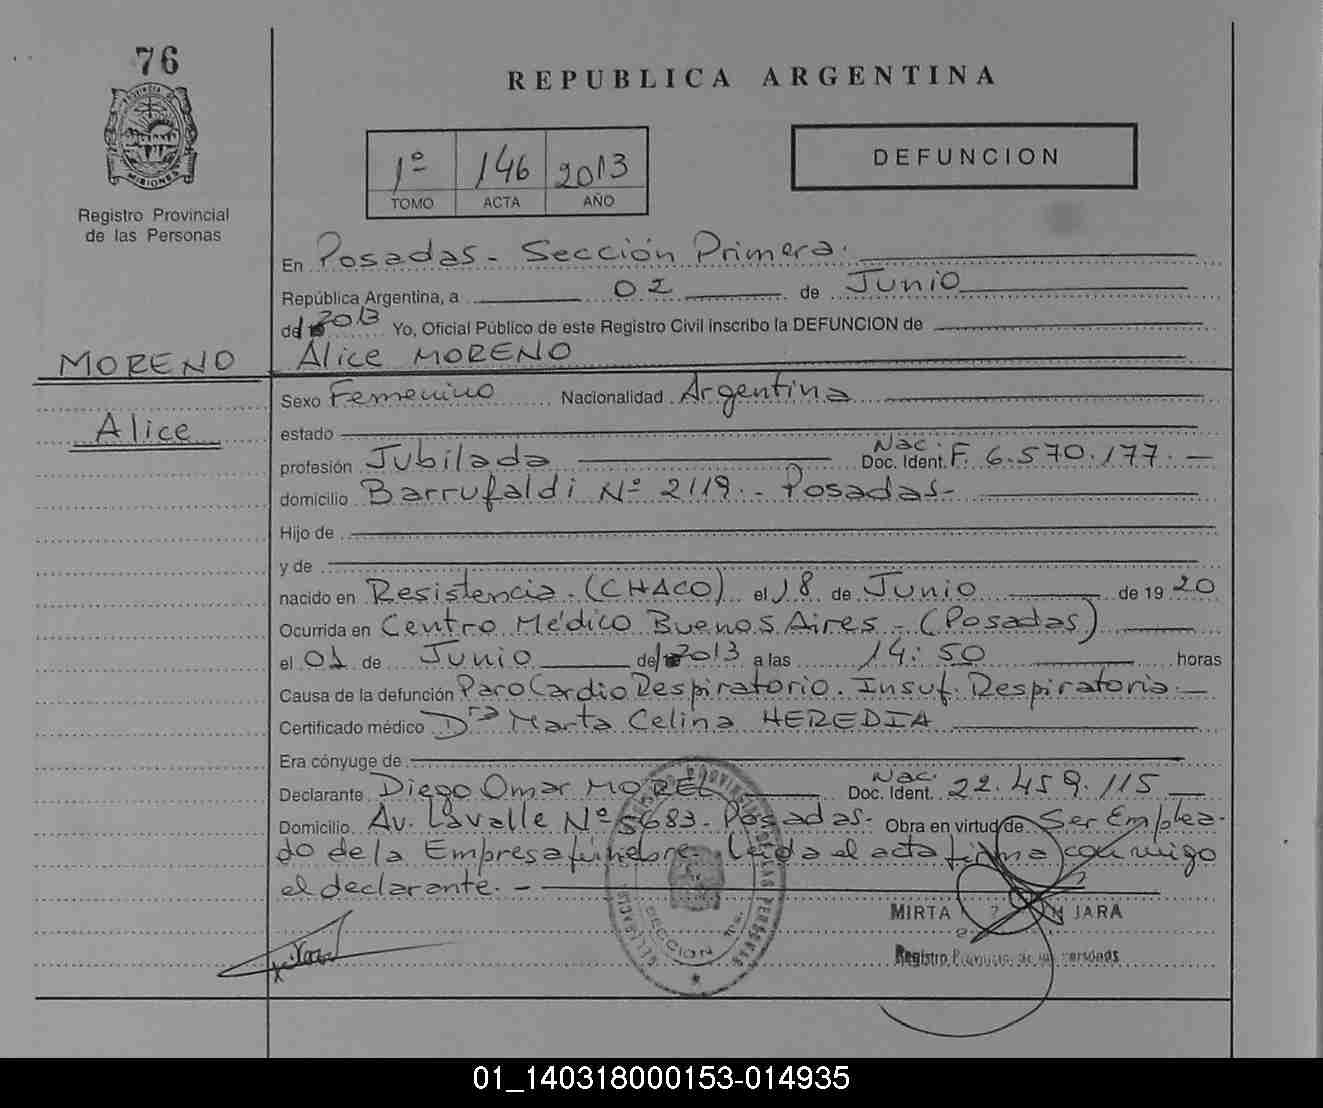 76
REPUBLICA ARGENTINA
PROVINCIA DE
MISIONES
Registro Provincial
de las Personas
1º 146 2013
TOMO ACTA AÑO
DEFUNCION
En Posadas - Sección Primera.
República Argentina, a 02 de Junio
de 2013 Yo, Oficial Público de este Registro Civil inscribo la DEFUNCION de
MORENO Alice MORENO
Sexo Femenino Nacionalidad Argentina
Alice
estado
profesión Jubilada Nac. Doc. Ident. F. 6.570.177. -
domicilio Barrufaldi Nº 2119. - Posadas -
Hijo de
y de
nacido en Resistencia. (CHACO) el 18 de Junio de 1920
Ocurrida en Centro Médico Buenos Aires - (Posadas)
el 01 de Junio de 2013 a las 14:50 horas
Causa de la defunción Paro Cardio Respiratorio. Insuf. Respiratoria. -
Certificado médico Dra Marta Celina HEREDIA
Era cónyuge de
Declarante Diego Omar MOREL Nac. Doc. Ident. 22.459.115
Domicilio Av. Lavalle Nº 5683 - Posadas - Obra en virtud de Ser Emplea-
do de la Empresa fúnebre. Leída el acta firma conmigo
el declarante. -
MIRTA JARA
Registro
SECCION
01_140318000153-014935